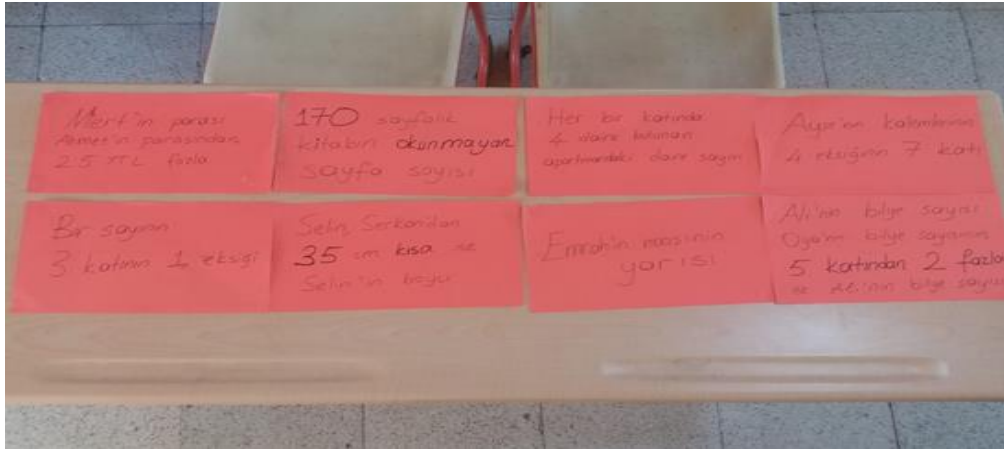 Mert'in parası
Ahmet'in parasından
25 TL fazla
170 sayfalık
kitabın okunmayan
sayfa sayısı
Her bir katında
4 daire bulunan
apartmandaki daire sayısı
Ayşe'nin kalemlerinin
4 eksiğinin 7 katı
Bir sayının
3 katının 1 eksiği
Selin, Serkan'dan
35 cm kısa ise
Selin'in boyu
Emrah'ın maaşının
yarısı
Ali'nin bilye sayısı
Oya'nın bilye sayısının
5 katından 2 fazla
ise Ali'nin bilye sayısı